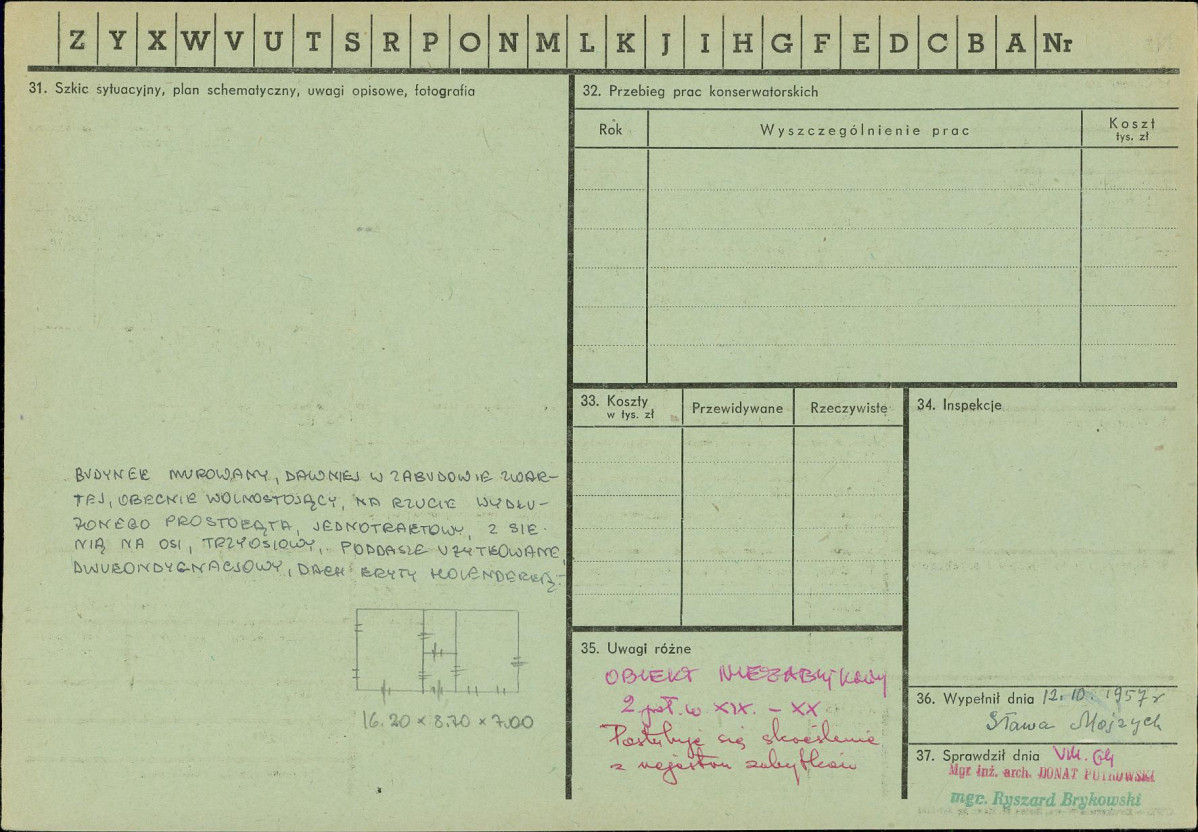 Z Y X W V U T S R P O N M L K J I H G F E D C B A Nr
31. Szkic sytuacyjny, plan schematyczny, uwagi opisowe, fotografia
BUDYNEK MUROWANY, DAWNIEJ W ZABUDOWIE ZWAR-
TEJ, OBECNIE WOLNOSTOJĄCY, NA RZUCIE WYDŁU-
ŻONEGO PROSTOKĄTA, JEDNOTRAKTOWY, Z SIE-
NIĄ NA OSI, TRZYOSIOWY, PODDASZE UŻYTKOWANE,
DWUKONDYGNACJOWY, DACH KRYTY HOLENDERKĄ.
16.20 × 8.20 × 7.00
32. Przebieg prac konserwatorskich
Rok
Wyszczególnienie prac
Koszt
tys. zł
33. Koszty
w tys. zł
Przewidywane
Rzeczywiste
34. Inspekcje
35. Uwagi różne
OBIEKT NIEZABYTKOWY
2 poł. w XIX. – XX
Postuluje się skreślenie
z rejestru zabytków
36. Wypełnił dnia 12.10.1957 r
Sława Mojzych
37. Sprawdził dnia VIII. 64
Mgr inż. arch. DONAT PUTKOWSKI
mgr. Ryszard Brykowski